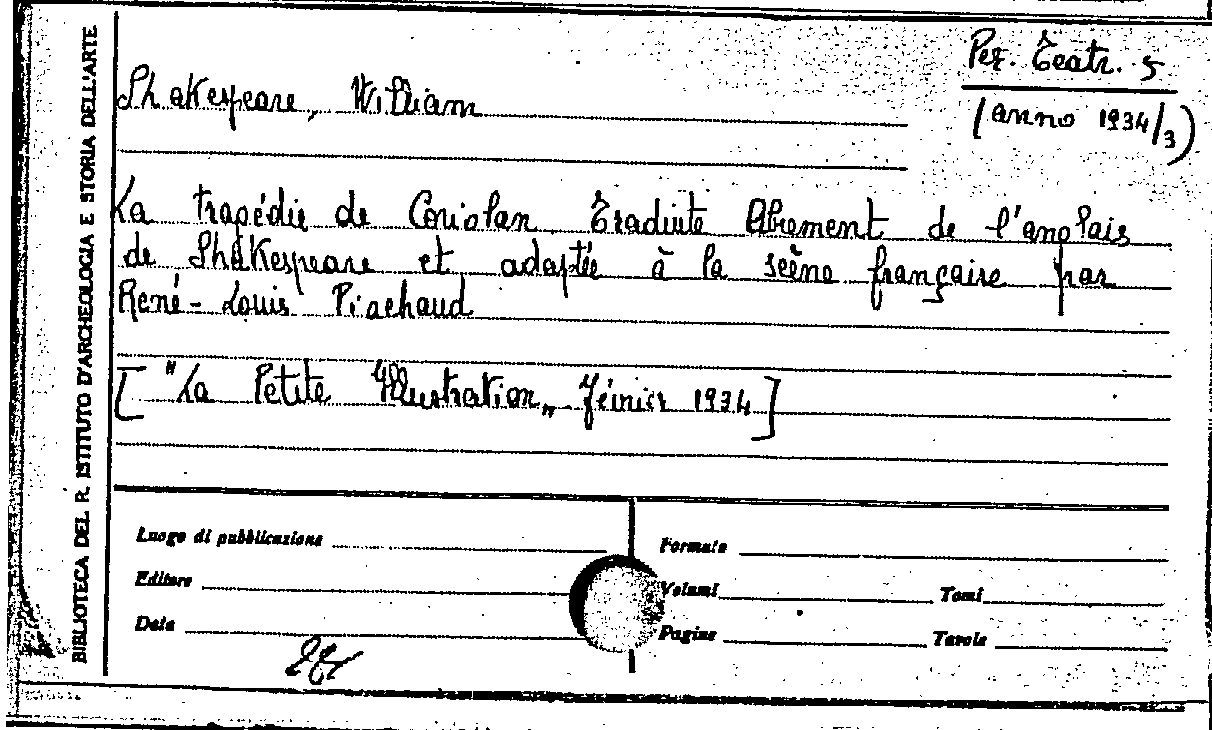 BIBLIOTECA DEL R. ISTITUTO D'ARCHEOLOGIA E STORIA DELL'ARTE
Per. Teatr. 5
(anno 1934/3)
Shakespeare, William
La tragédie de Coriolan Traduite librement de l'anglais
de Shakespeare et adaptée à la scène française par
René-Louis Piachaud
["La Petite Illustration„ février 1934]
Luogo di pubblicazione
Formato
Editore
Volumi
Tomi
Data
Pagine
Tavole